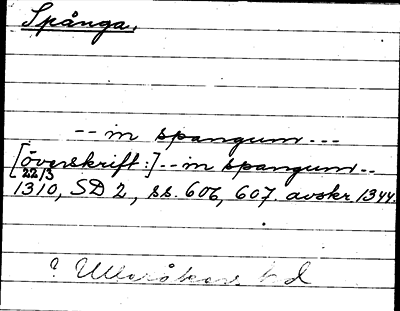 Spånga.
-- in spangum ---
[överskrift:] -- in spangum --
22/3
1310, SD 2, ss. 606, 607. avskr. 1344.
? Ulleråkers hd